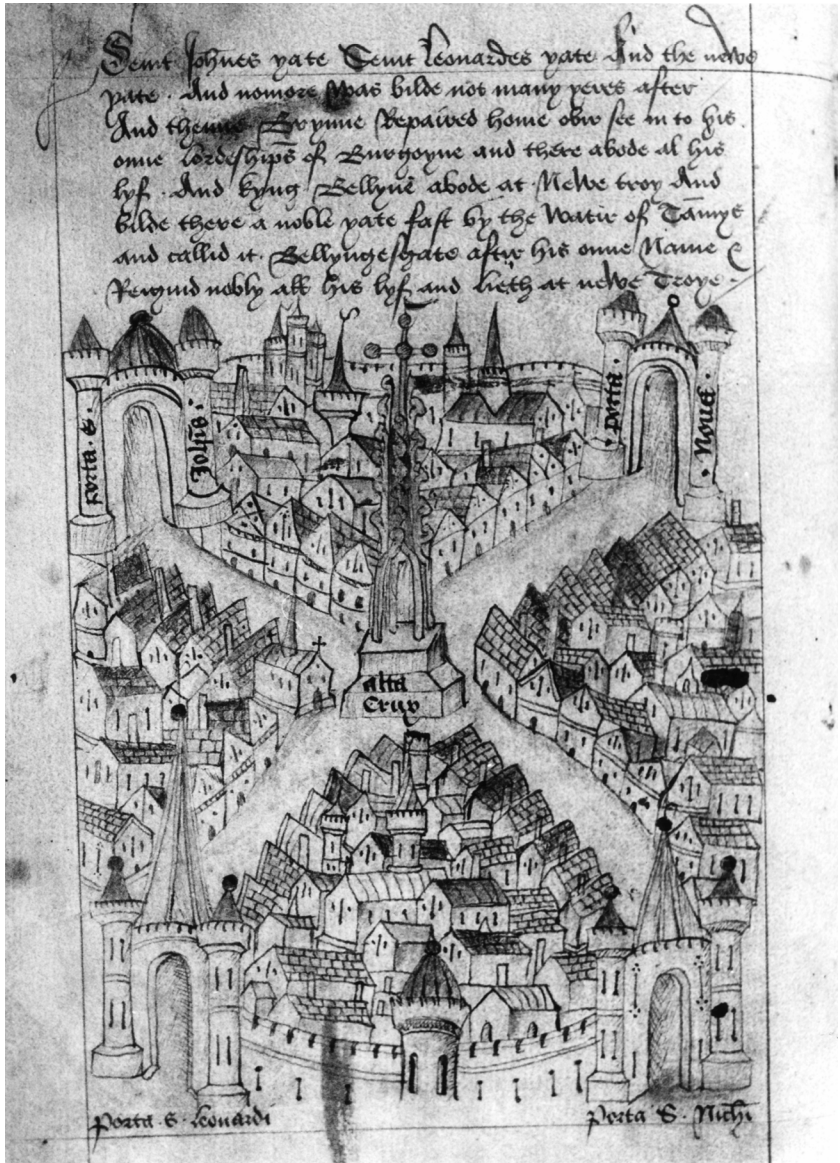 Seint Joh̄nes yate Seint Leonardes yate And the newe
yate . And nomore was bilde not many yeres after
And thenne Brynne Repaired home ovir see in to his
onne lordeships̄ of Burgoyne and there abode al his
lyf . And kyng Bellyne abode at Newe troy And
bilde there a noble yate fast by the watir of Tāmys
and callid it . Bellyngesgate aftir his onne Name &
Reignid nobly all his lyf and lieth at newe Troye .
porta . S .
Joh̄is .
. porta .
. Noua .
alta
Crux
porta S . leonardi
porta S . Nichī